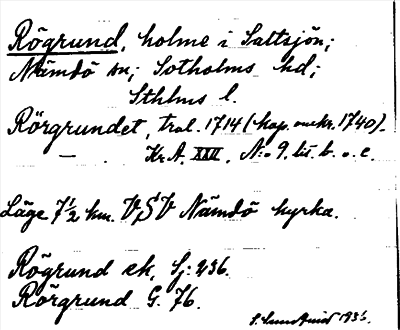 Rögrund, holme i Saltsjön;
Nämdö sn; Sotholms hd;
Sthlms l.
Rörgrundet, tral. 1714 (kop. omkr. 1740).
— . Kr. A. XXII. N:o 9. lit. b. o. c.
Läge 7 1/2 km. VSV Nämdö kyrka.
Rögrund ek, Sj: 236.
Rörgrund G. 76.
1936.